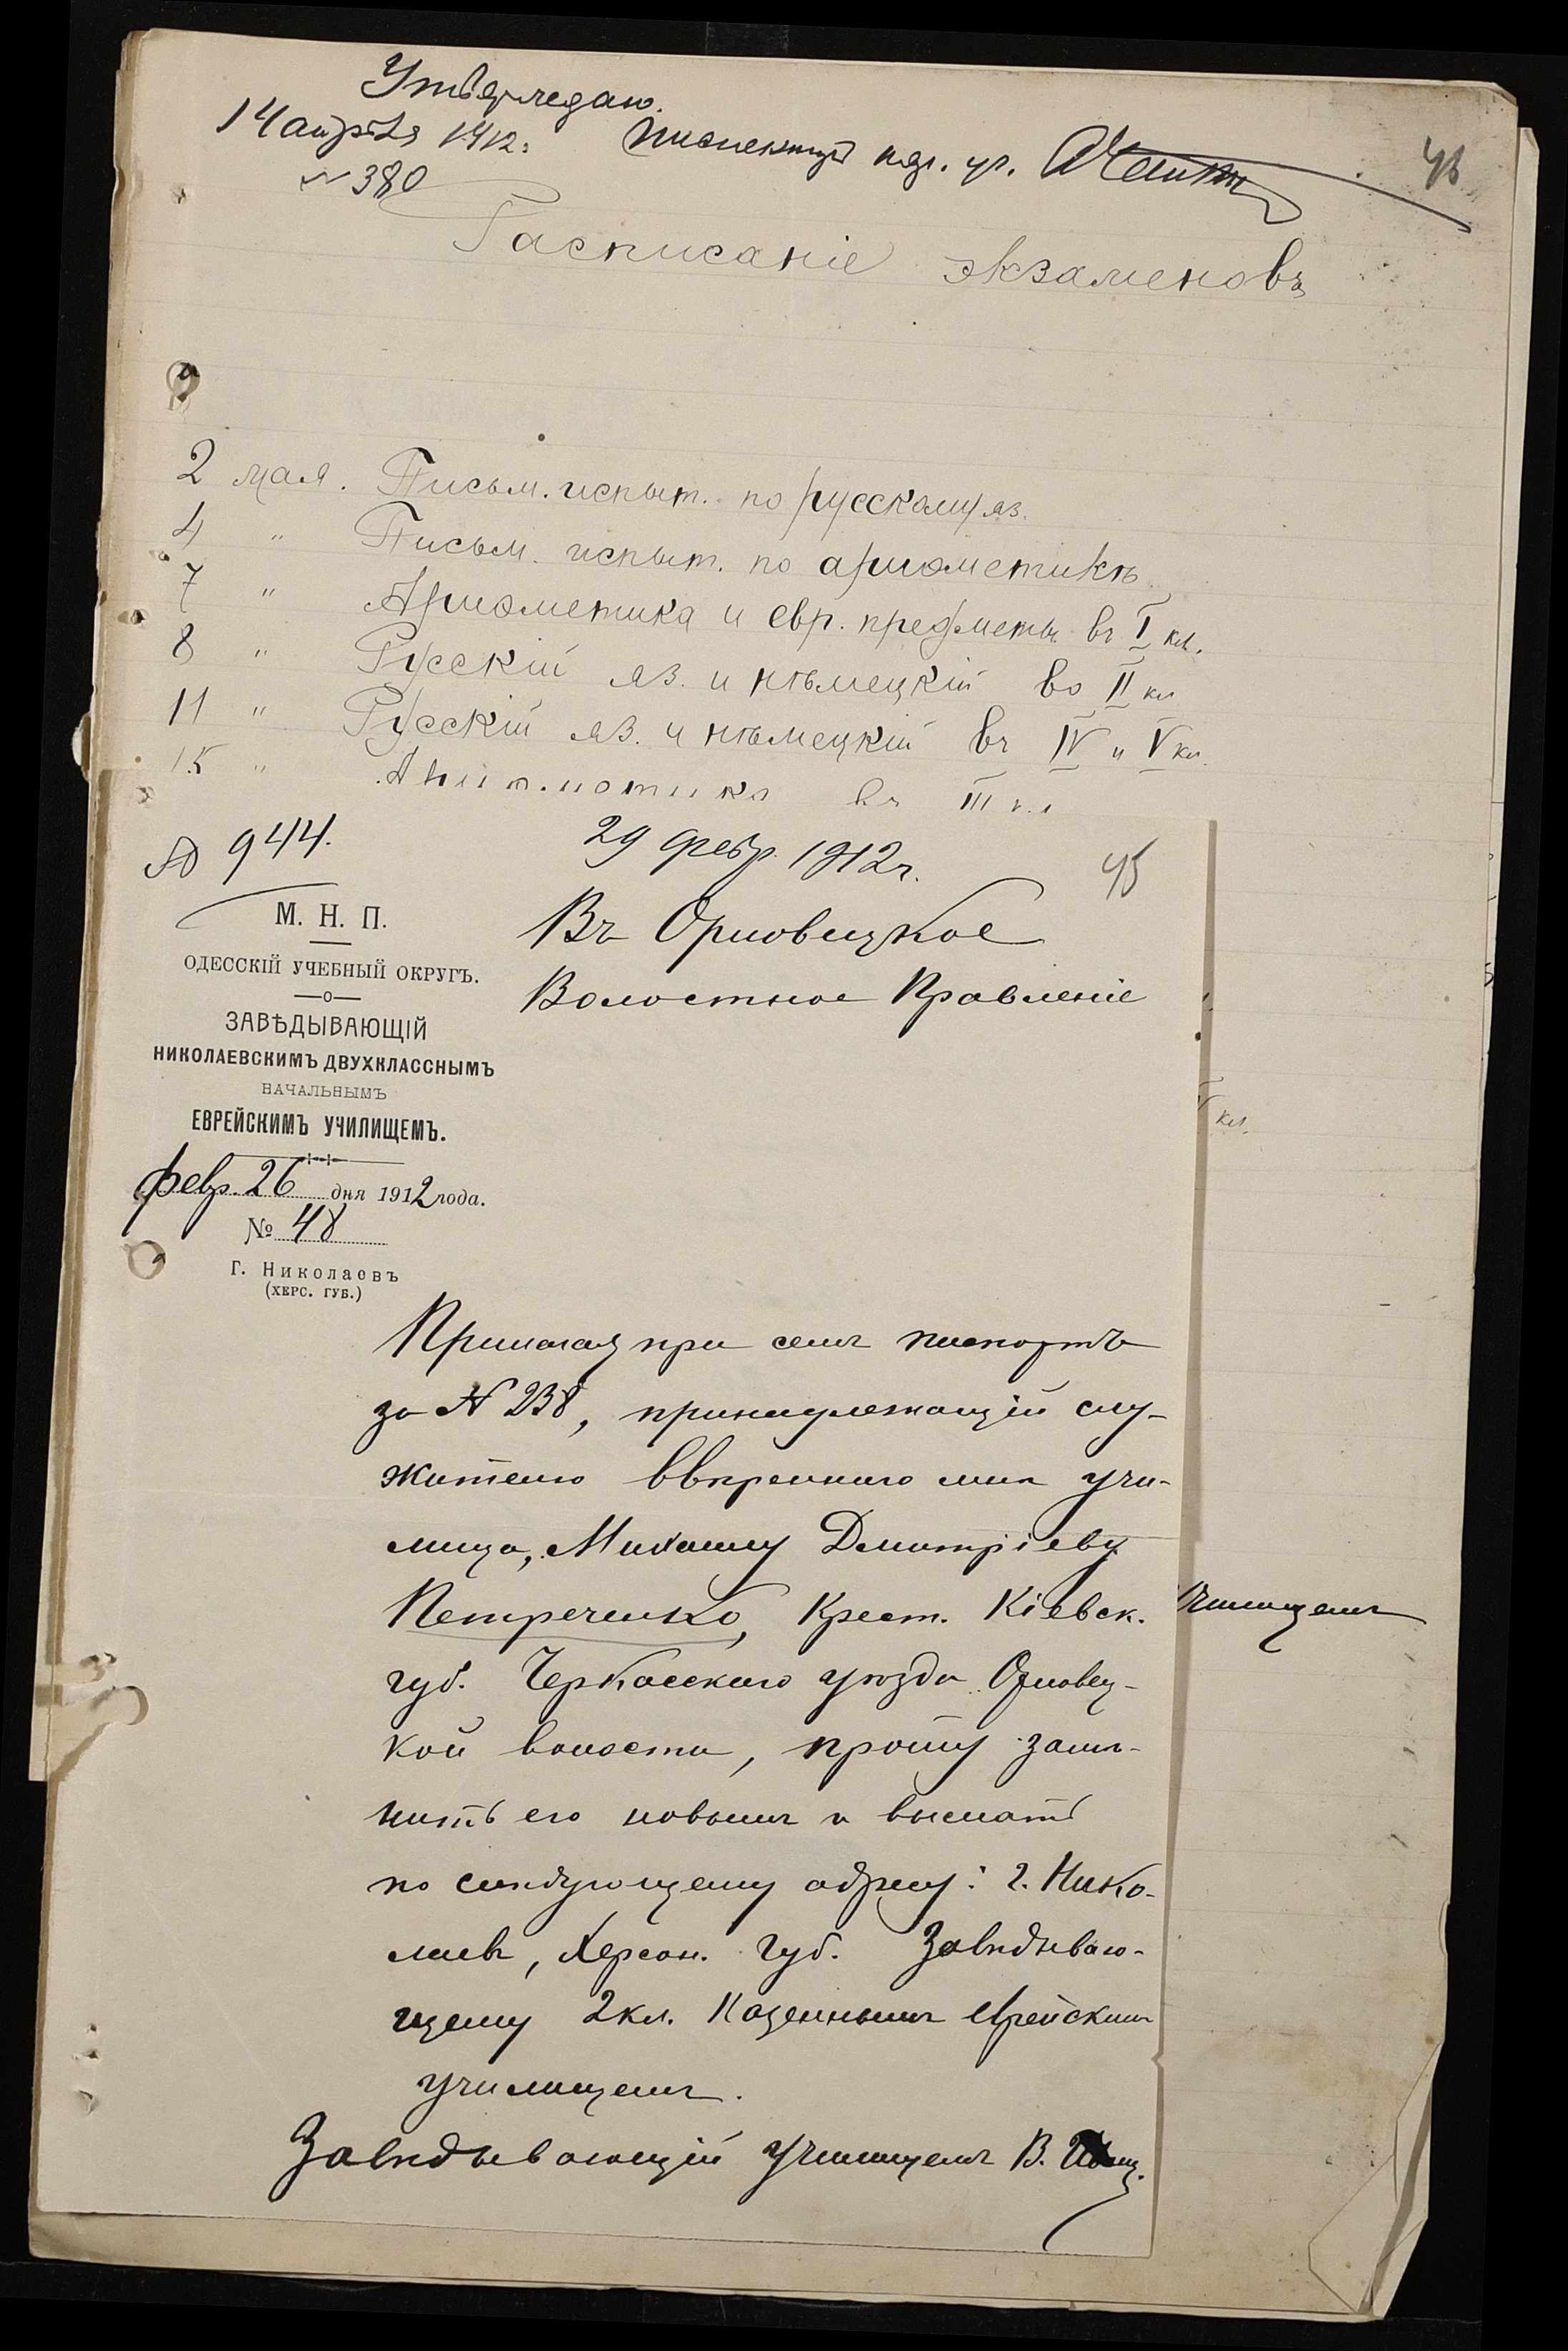 Утверждаю.
14 апрѣля 1912. Инспекторъ нар. уч.
№ 380
46
Расписаніе экзаменовъ
2 мая. Письм. испыт. по русскому яз.
4 " Письм. испыт. по ариѳметикѣ
7 " Ариѳметика и евр. предметы въ I кл.
8 " Русскій яз. и нѣмецкій во II кл
11 " Русскій яз. и нѣмецкій въ IV и V кл.
15 " Ариѳметика въ III кл
№ 944.
29 февр. 1912 г.
45
М. Н. П.
ОДЕССКІЙ УЧЕБНЫЙ ОКРУГЪ.
ЗАВѢДЫВАЮЩІЙ
НИКОЛАЕВСКИМЪ ДВУХКЛАССНЫМЪ
НАЧАЛЬНЫМЪ
ЕВРЕЙСКИМЪ УЧИЛИЩЕМЪ.
февр. 26 дня 1912 года.
№ 48
Г. Николаевъ
(ХЕРС. ГУБ.)
Въ Орловецкое
Волостное Правленіе
кл.
Прилагая при семъ паспортъ
за № 238, принадлежащій слу-
жителю ввѣреннаго мнѣ учи-
лища, Михаилу Дмитріеву
Петренко, крест. Кіевск.
губ. Черкасскаго уѣзда Орловец-
кой волости, прошу замѣ-
нить его новымъ и выслать
по слѣдующему адресу: г. Нико-
лаевъ, Херсон. губ. Завѣдываю-
щему 2 кл. Казеннымъ еврейскимъ
училищемъ.
Завѣдывающій училищемъ В.
училищемъ